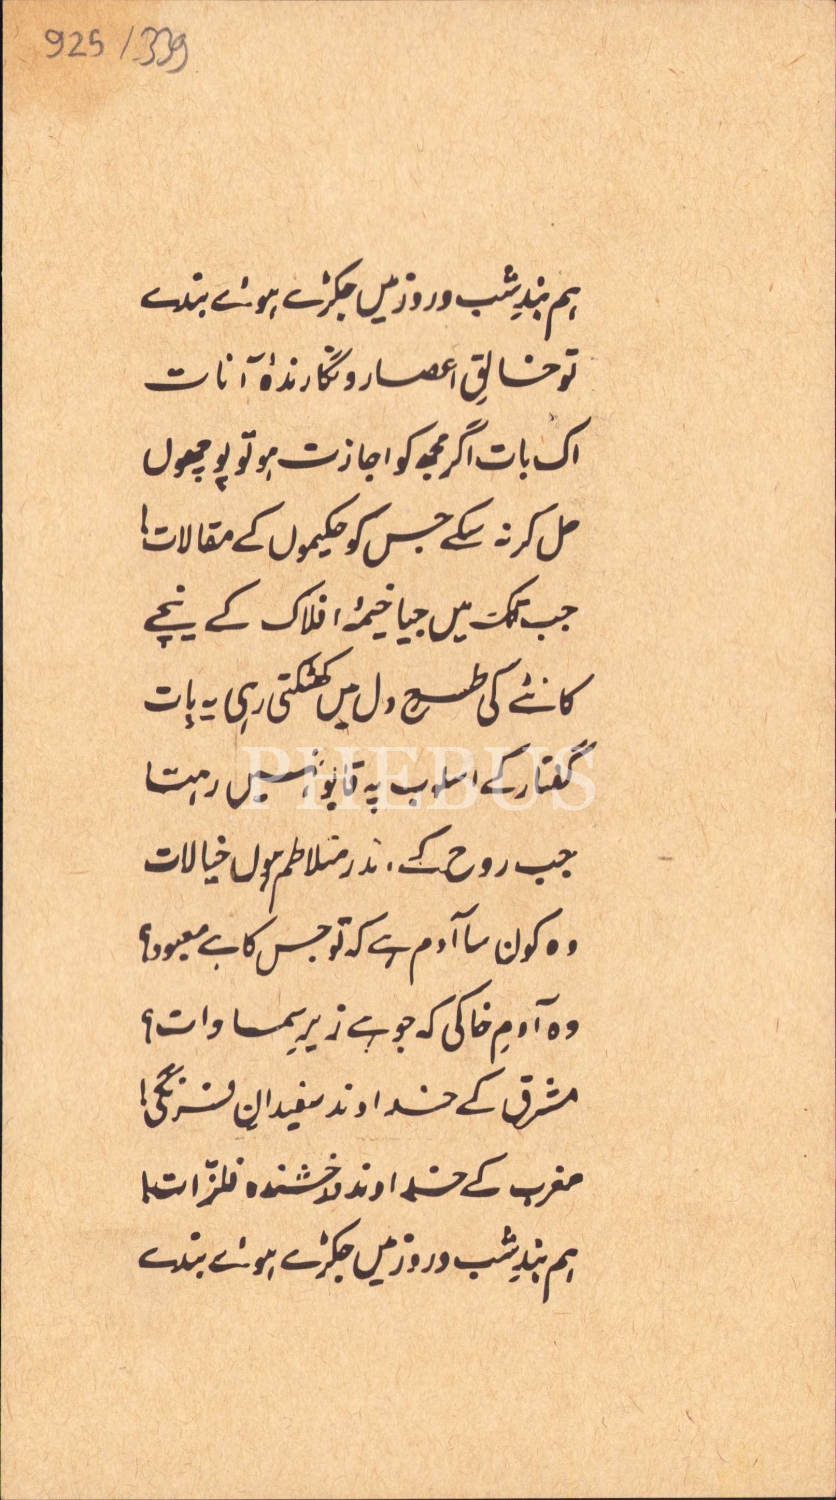 925/339
ہم بندِ شب و روز میں جکڑے ہوئے بندے
تو خالقِ اعصار و نگارندۂ آنات
اک بات اگر مجھ کو اجازت ہو تو پوچھوں
حل کر نہ سکے جس کو حکیموں کے مقالات!
جب تک میں جیا خیمۂ افلاک کے نیچے
کانٹے کی طرح دل میں کھٹکتی رہی یہ بات
گفتار کے اسلوب پہ قابو نہیں رہتا
جب روح کے اندر متلاطم ہوں خیالات
وہ کون سا آدم ہے کہ تو جس کا ہے معبود؟
وہ آدمِ خاکی کہ جو ہے زیرِ سماوات؟
مشرق کے خداوند سفیدانِ فرنگی!
مغرب کے خداوند درخشندہ فلزّات!
ہم بندِ شب و روز میں جکڑے ہوئے بندے
PHEBUS